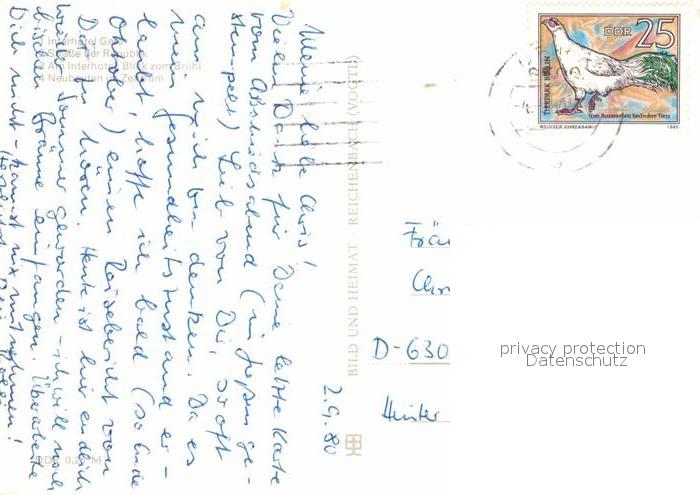 2.9.80
Meine liebe Chris!
Vielen Dank für Deine letzte Karte
vom Abschiedsabend (in Jeßen ge-
stempelt) Lieb von Dir, so oft
an mich zu denken. Da es
mein Gesundheitszustand er-
laubt, hoffe ich bald (so Ende
Oktober) einen Reisebericht von
Dir zu hören. Heute ist hier endlich
Sommer geworden - ich will noch
bißchen Bräune einfangen. Überarbeite
Dich nicht - kannst nix mitnehmen!
Herzlichst Dein
Interhotel Gera
Straße der Republik
Am Interhotel, Blick zum Brühl
4 Neubauten im Zentrum
0,20 M
BILD UND HEIMAT · REICHENBACH (VOGTL)
DDR 25
TIERPARK BERLIN
Vom Aussterben bedrohte Tiere
WEISSER OHRFASAN 1980
Fräu
Chr
D-630
Hinter
privacy protection
Datenschutz